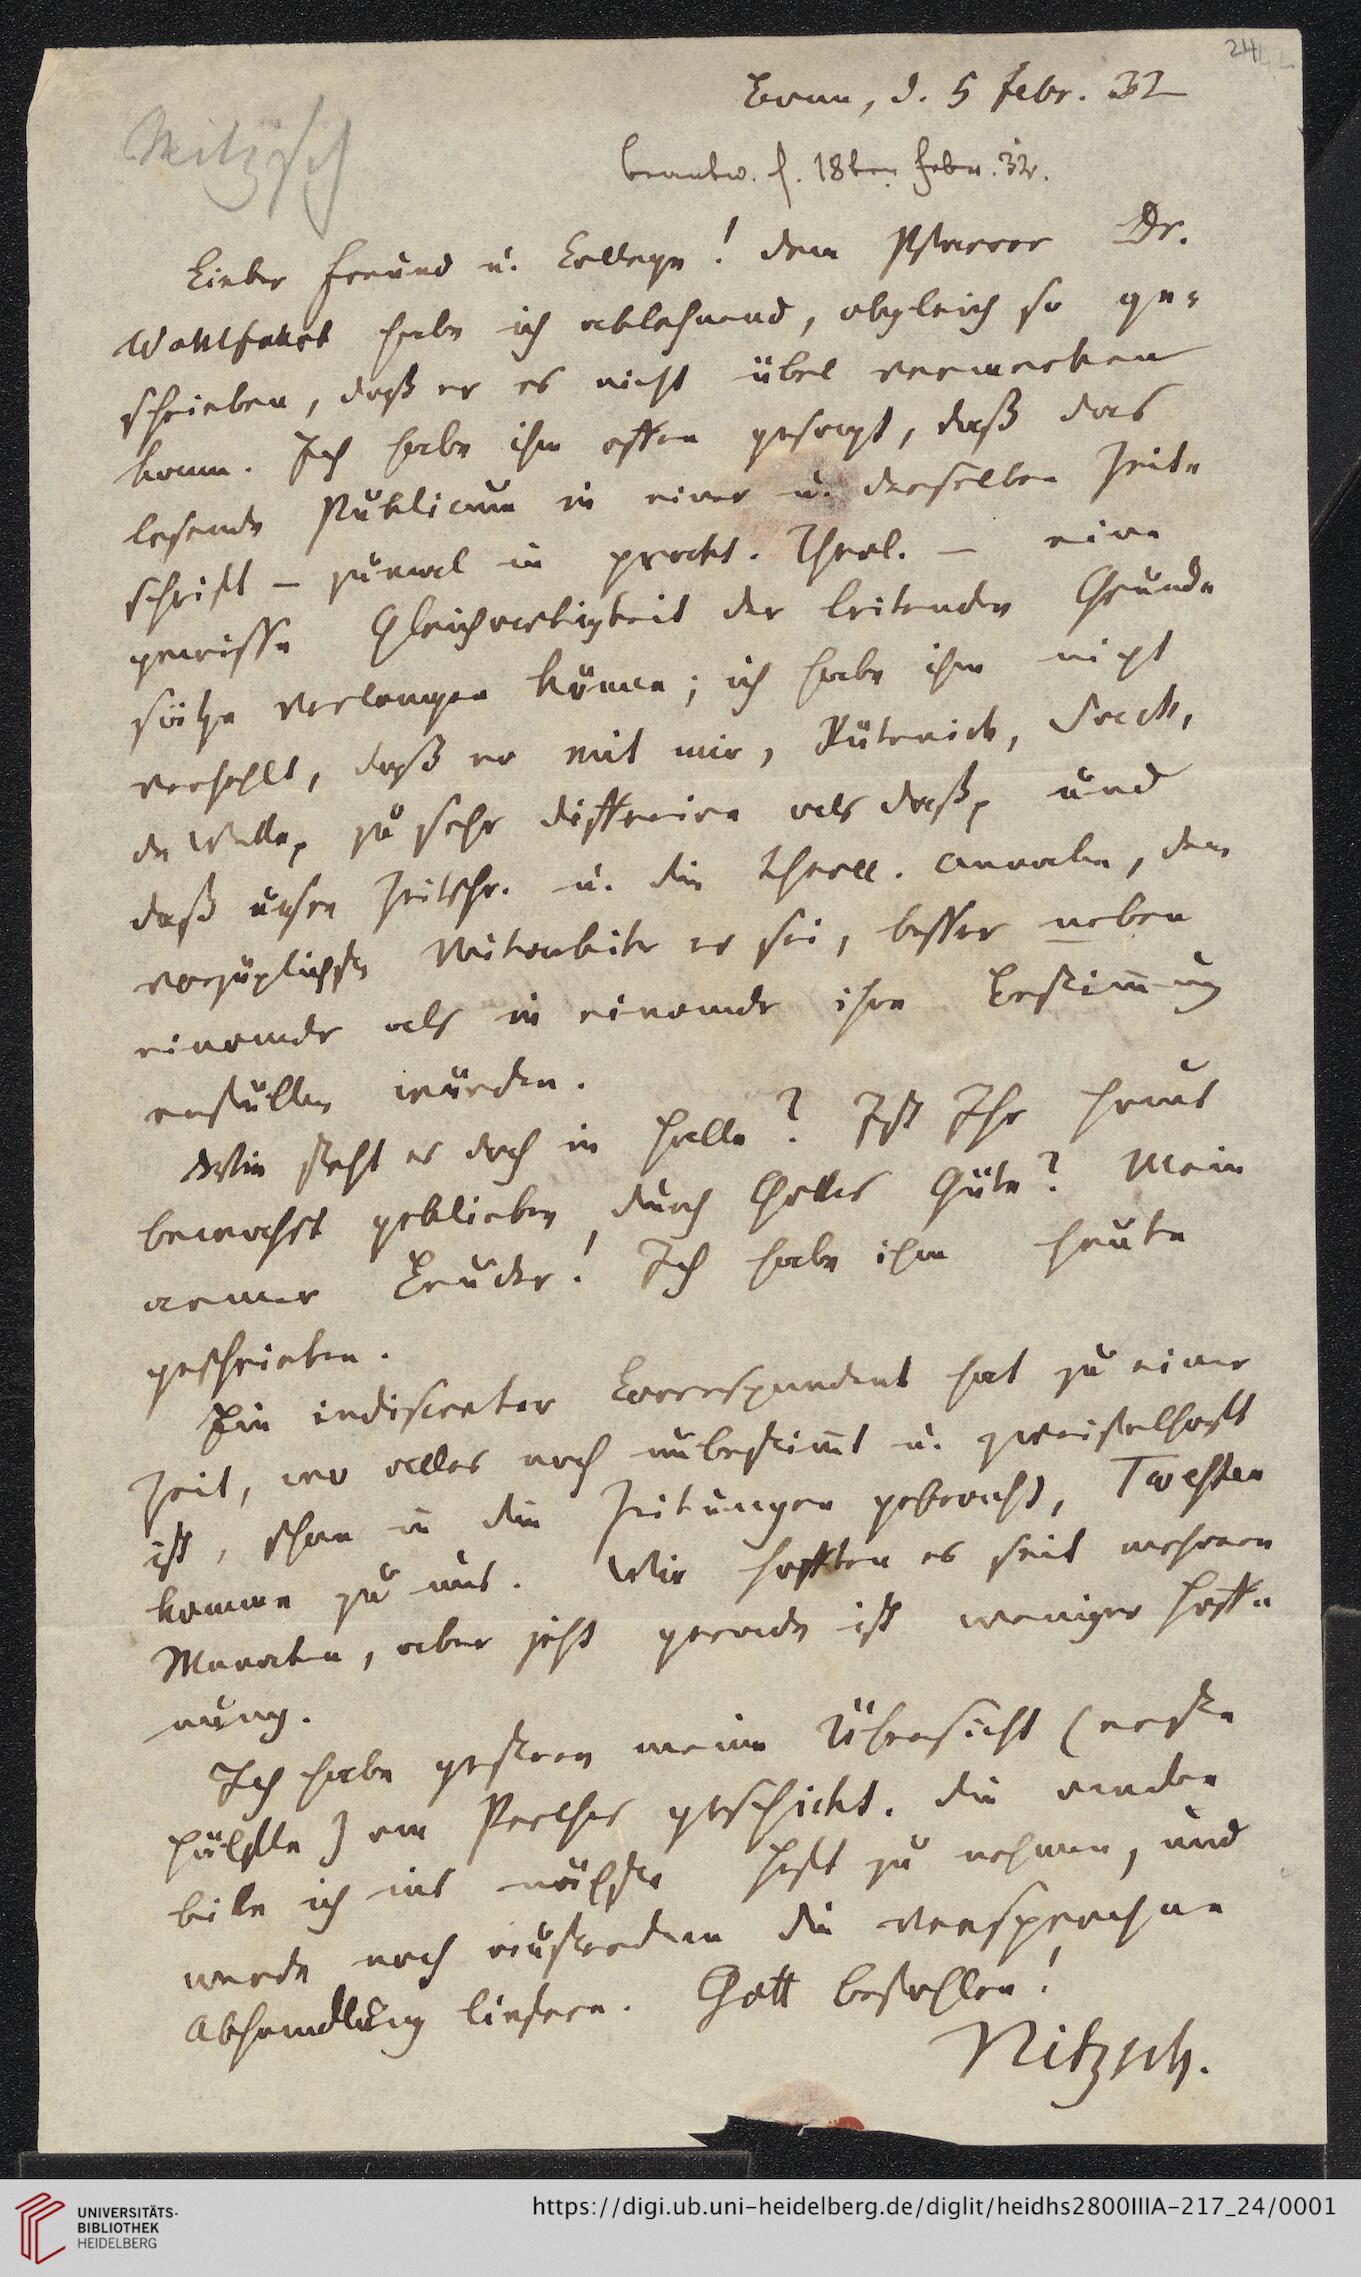 24
Bonn, d. 5 Febr. 32
beantw. d. 18ten Febr. 32.
Nitzsch
Lieber Freund u. College! dem Pfarrer Dr.
Wohlfahrt habe ich ablehnend, obgleich so ge-
schrieben, daß er es nicht übel vermerken
kann. Ich habe ihm offen gesagt, daß das
lesende Publicum in einer u. derselben Zeit-
schrift – zumal in pract. Theol. – eine
gewisse Gleichartigkeit der leitenden Grund-
sätze verlangen könne; ich habe ihm nicht
verhehlt, daß er mit mir, Rüterick, Sack,
de Wette, zu sehr differire als daß, und
daß unsre Zeitschr. u. die theoll. annalen, deren
vorzüglichster Mitarbeiter er sei, besser neben
einander als in einander ihre Bestimmung
erfüllen würden.
Wie steht es doch in Halle? Ist Ihr Haus
bewahrt geblieben durch Gottes Güte? Mein
armer Bruder! Ich habe ihm heute
geschrieben.
Ein indiscreter Correspondent hat zu einer
Zeit, wo alles noch unbestimt u. zweifelhaft
ist, schon in die Zeitungen gebracht, Twesten
komme zu uns. Wir hofften es seit mehreren
Monaten, aber jetzt gerade ist weniger Hoff-
nung.
Ich habe gestern meine Übersicht (erste
Hälfte) an Perthes geschickt. Die
bitte ich ins nächste Heft zu nehmen, und
werde noch außerdem die versprochne
Abhandlung liefern. Gott befohlen!
Nitzsch.
UNIVERSITÄTS-
BIBLIOTHEK
HEIDELBERG
https://digi.ub.uni-heidelberg.de/diglit/heidhs2800IIIA-217_24/0001